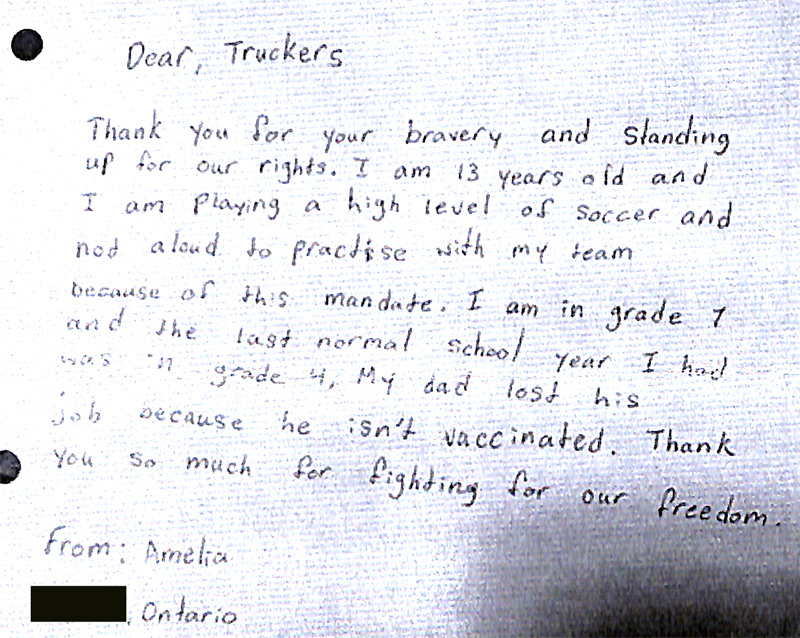 Dear, Truckers
Thank you for your bravery and Standing
up for our rights. I am 13 years old and
I am Playing a high level of soccer and
not aloud to practise with my team
because of this mandate. I am in grade 7
and the last normal school year I had
was in grade 4, My dad lost his
job because he isn't vaccinated. Thank
you so much for fighting for our freedom.
From: Amelia
, Ontario